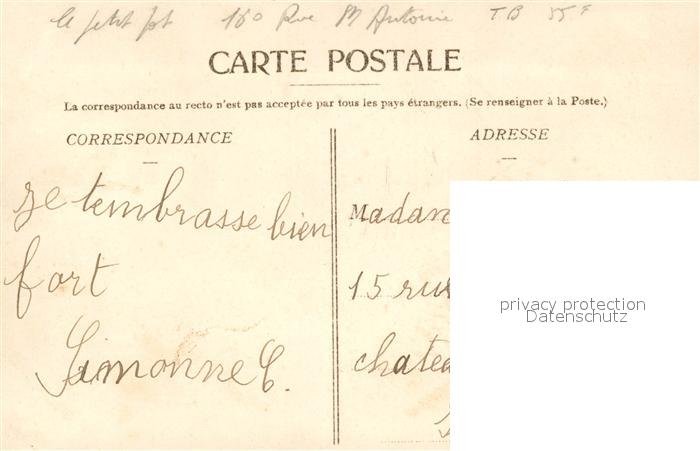 16° Rue St Antoine TB 55F
CARTE POSTALE
La correspondance au recto n'est pas acceptée par tous les pays étrangers. (Se renseigner à la Poste.)
CORRESPONDANCE
ADRESSE
je tembrasse bien
fort
Simonne C.
Madam
15 rue
chatea
privacy protection
Datenschutz